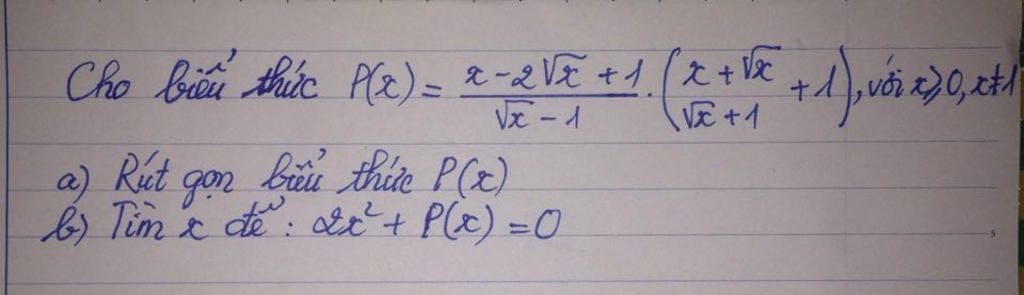 Cho biểu thức P(x) = \frac{x - 2\sqrt{x} + 1}{\sqrt{x} - 1} . \left( \frac{x + \sqrt{x}}{\sqrt{x} + 1} + 1 \right), với x ⩾ 0, x ≠ 1
a) Rút gọn biểu thức P(x)
b) Tìm x để : 2x² + P(x) = 0